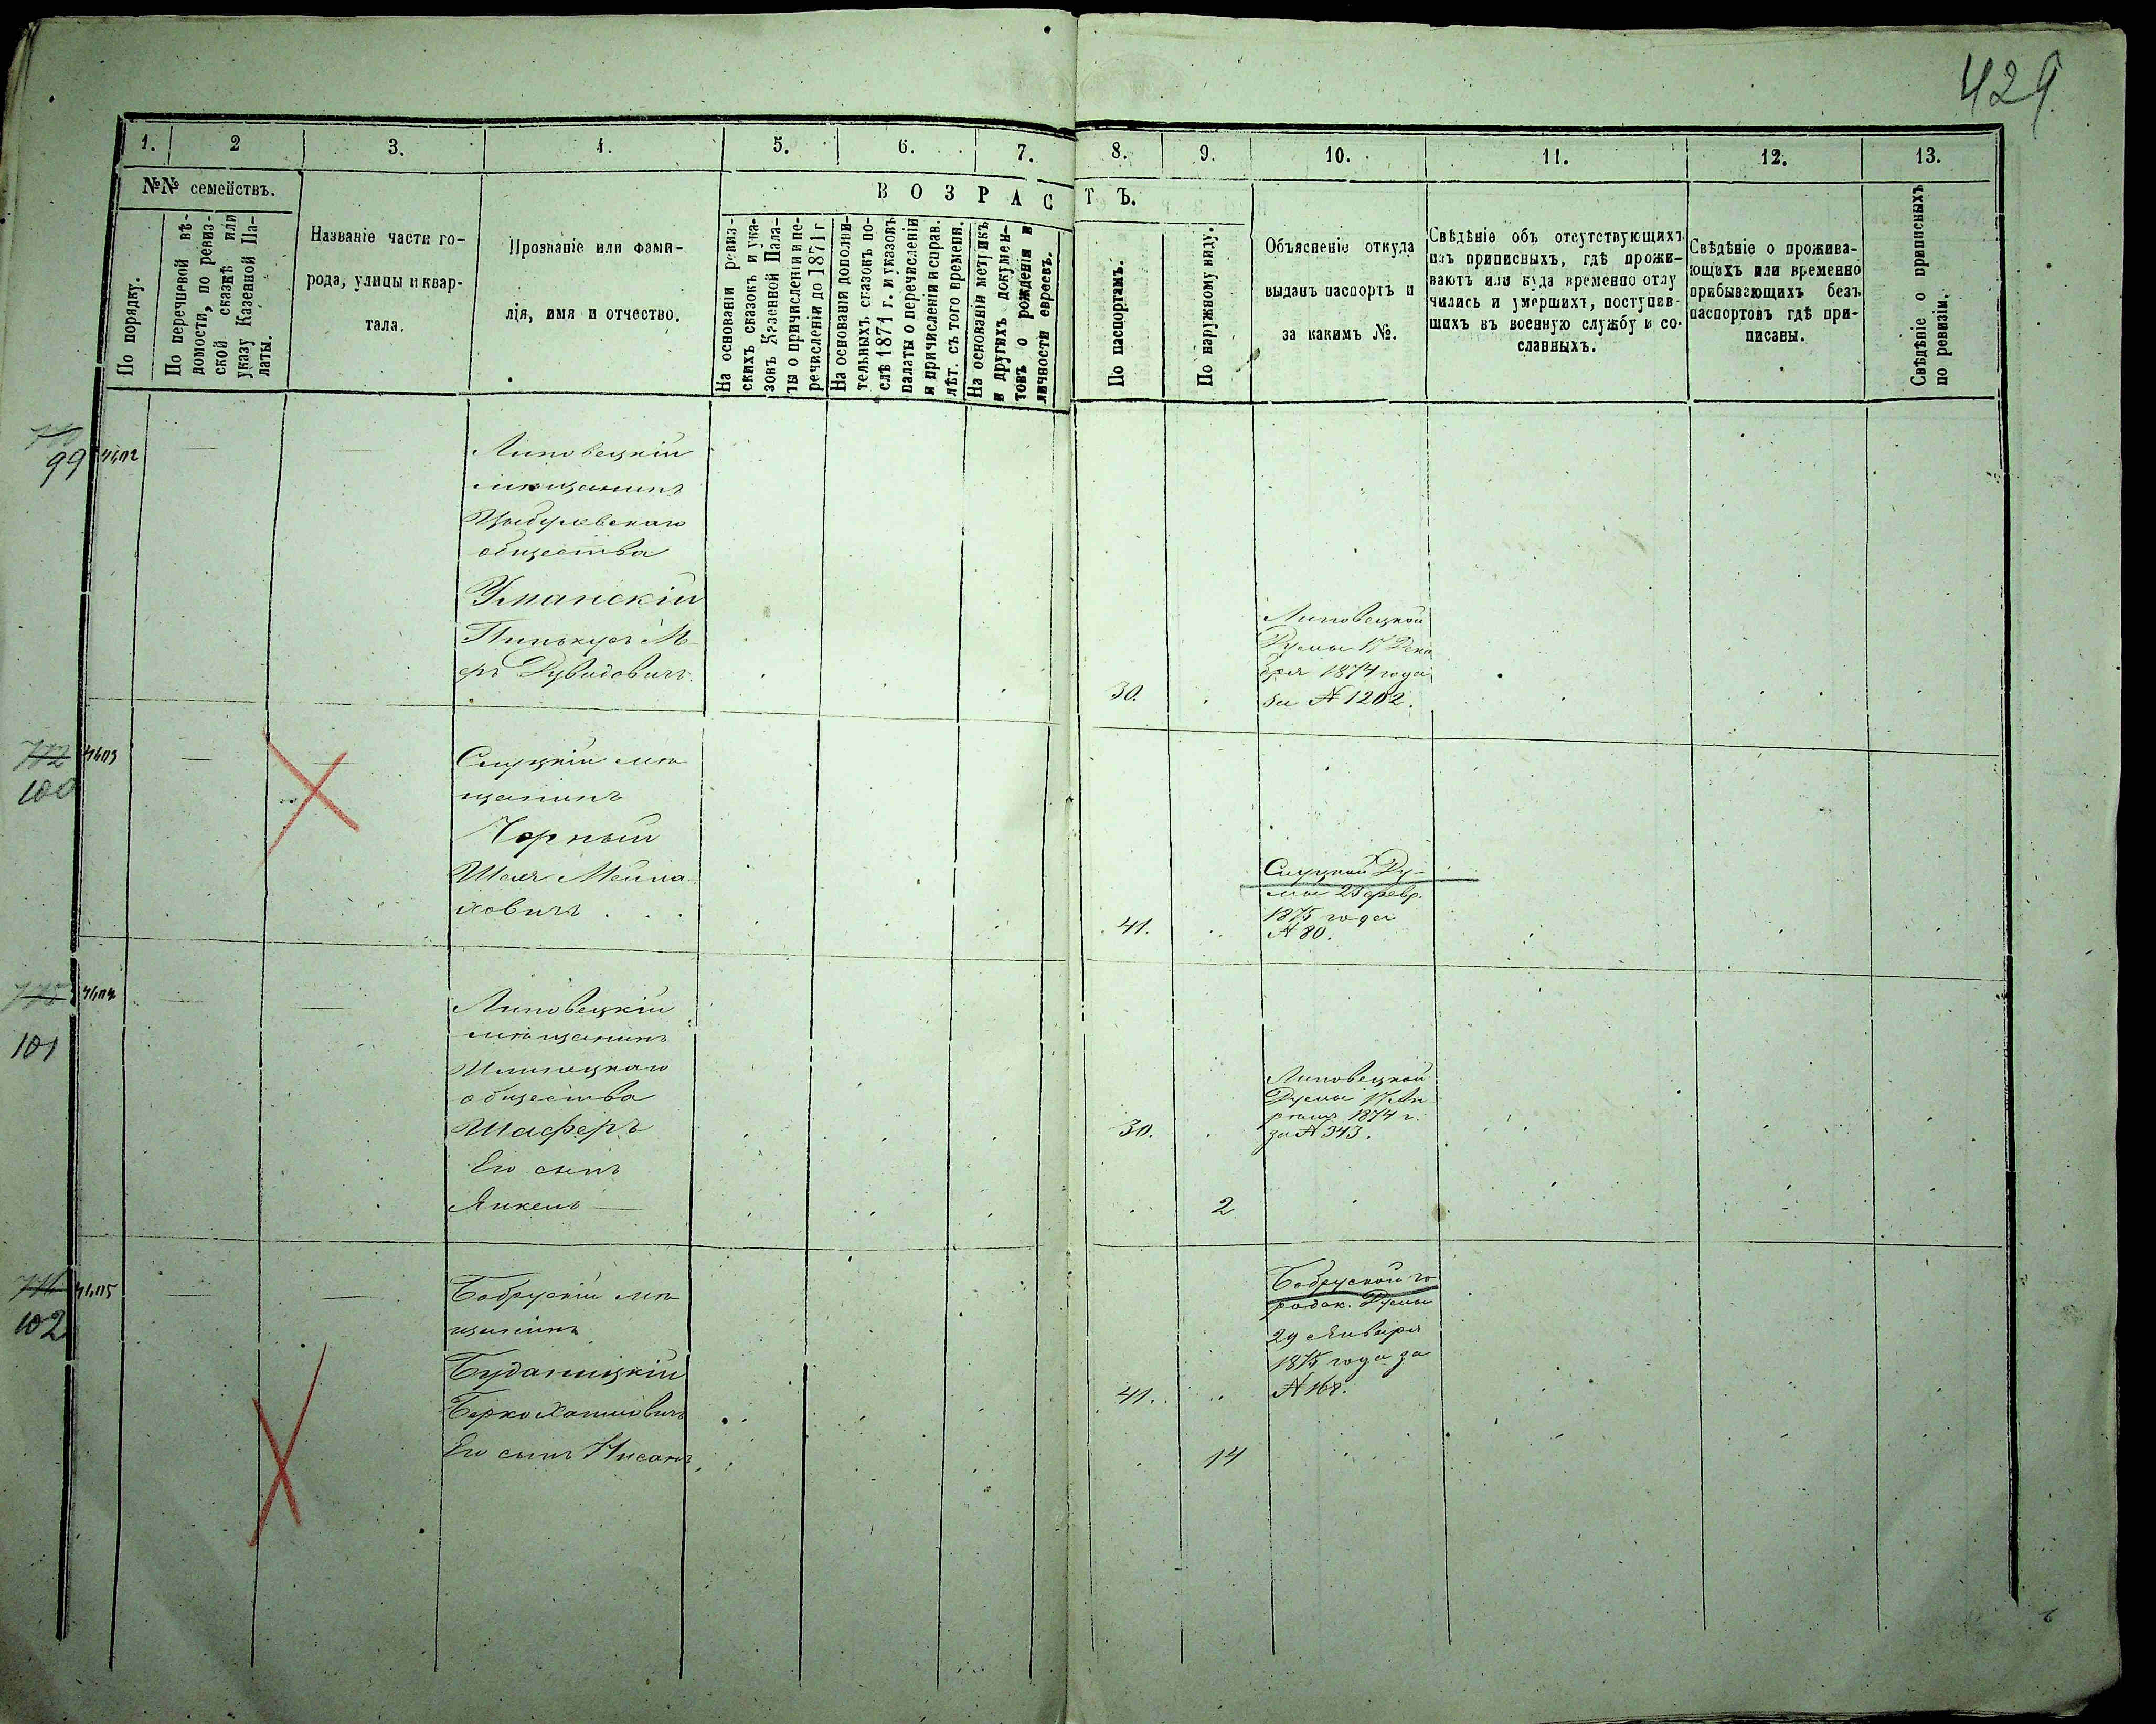 429.
1. 2 3. 4. 5. 6. 7. 8. 9. 10. 11. 12. 13.
№№ семействъ.
По порядку.
По перечневой вѣ-
домости, по ревиз-
ской сказкѣ или
указу Казенной Па-
латы.
Названіе части го-
рода, улицы и квар-
тала.
Прозваніе или фами-
лія, имя и отчество.
ВОЗРАСТЪ.
На основаніи ревиз-
скихъ сказокъ и ука-
зовъ Казенной Пала-
ты о причисленіи и пе-
речисленіи до 1871 г
На основаніи дополни-
тельныхъ сказокъ по-
слѣ 1871 г. и указовъ
палаты о перечисленіи
и причисленіи и справ.
лѣт. съ того времени.
На основаніи метрикъ
и другихъ докумен-
товъ о рожденіи и
личности евреевъ.
По паспортамъ.
По наружному виду.
Объясненіе откуда
выданъ паспортъ и
за какимъ №.
Свѣдѣніе объ отсутствующихъ
изъ приписныхъ, гдѣ прожи-
ваютъ или куда временно отлу
чились и умершихъ, поступив-
шихъ въ военную службу и со-
сланныхъ.
Свѣдѣніе о прожива-
ющихъ или временно
прибывающихъ безъ
паспортовъ гдѣ при-
писаны.
Свѣдѣніе о приписныхъ
по ревизіи.
99
Липовецкій
мѣщанинъ
Цыбулевскаго
общества
Уманскій
Пинькусъ М-
ръ Дувидовичъ.
30.
Липовецкой
Думы 17 Дека
бря 1874 года
за № 1202.
772
100
Слуцкій мѣ
щанинъ
Черный
Шая
ховичъ . . .
41.
Слуцкой Ду-
мы 25 февр.
1875 года
№ 80.
775
101
Липовецкій
мѣщанинъ
Илинецкаго
общества
Шаферъ
30.
Липовецкой
Думы 17 Ап
рѣля 1874 г.
за № 343.
Его сынъ
Янкель
2
102
Бобрускій мѣ
щанинъ
Буданицкій
Берко Хаимовичъ
41.
Бобруской го
родск. Думы
29 Января
1875 года за
№ 168.
Его сынъ Нисонъ
14